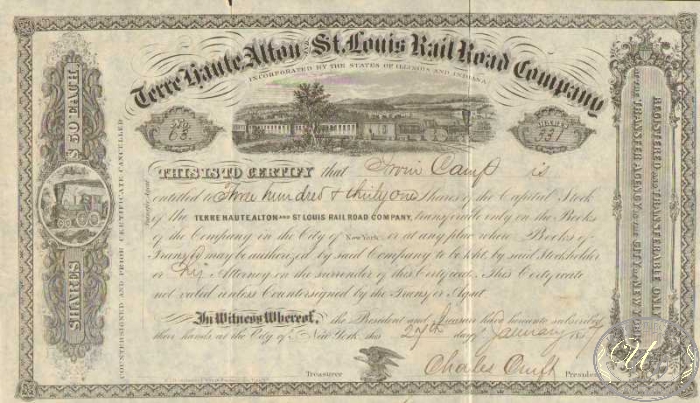 Terre Haute, Alton and St. Louis Rail Road Company
INCORPORATED BY THE STATES OF ILLINOIS AND INDIANA
No.
SHARES
331
SHARES $50 EACH
COUNTERSIGNED AND PRIOR CERTIFICATE CANCELLED
Transfer Agent
THIS IS TO CERTIFY that Camp is
entitled to Three hundred & thirty one Shares of the Capital Stock
of the TERRE HAUTE, ALTON AND ST LOUIS RAILROAD COMPANY, transferable only on the Books
of the Company in the City of New York, or at any place where Books of
Transfer may be authorized by said Company to be kept, by said Stockholder
or Attorney on the surrender of this Certificate. This Certificate
not valid unless Countersigned by the Transfer Agent
In Witness Whereof, the President and Treasurer have hereunto subscribed
their hands at the City of New York, this 27th day of January 18
Treasurer
Charles President
REGISTERED AND TRANSFERABLE ONLY
AT THE TRANSFER AGENCY IN THE CITY OF NEW YORK